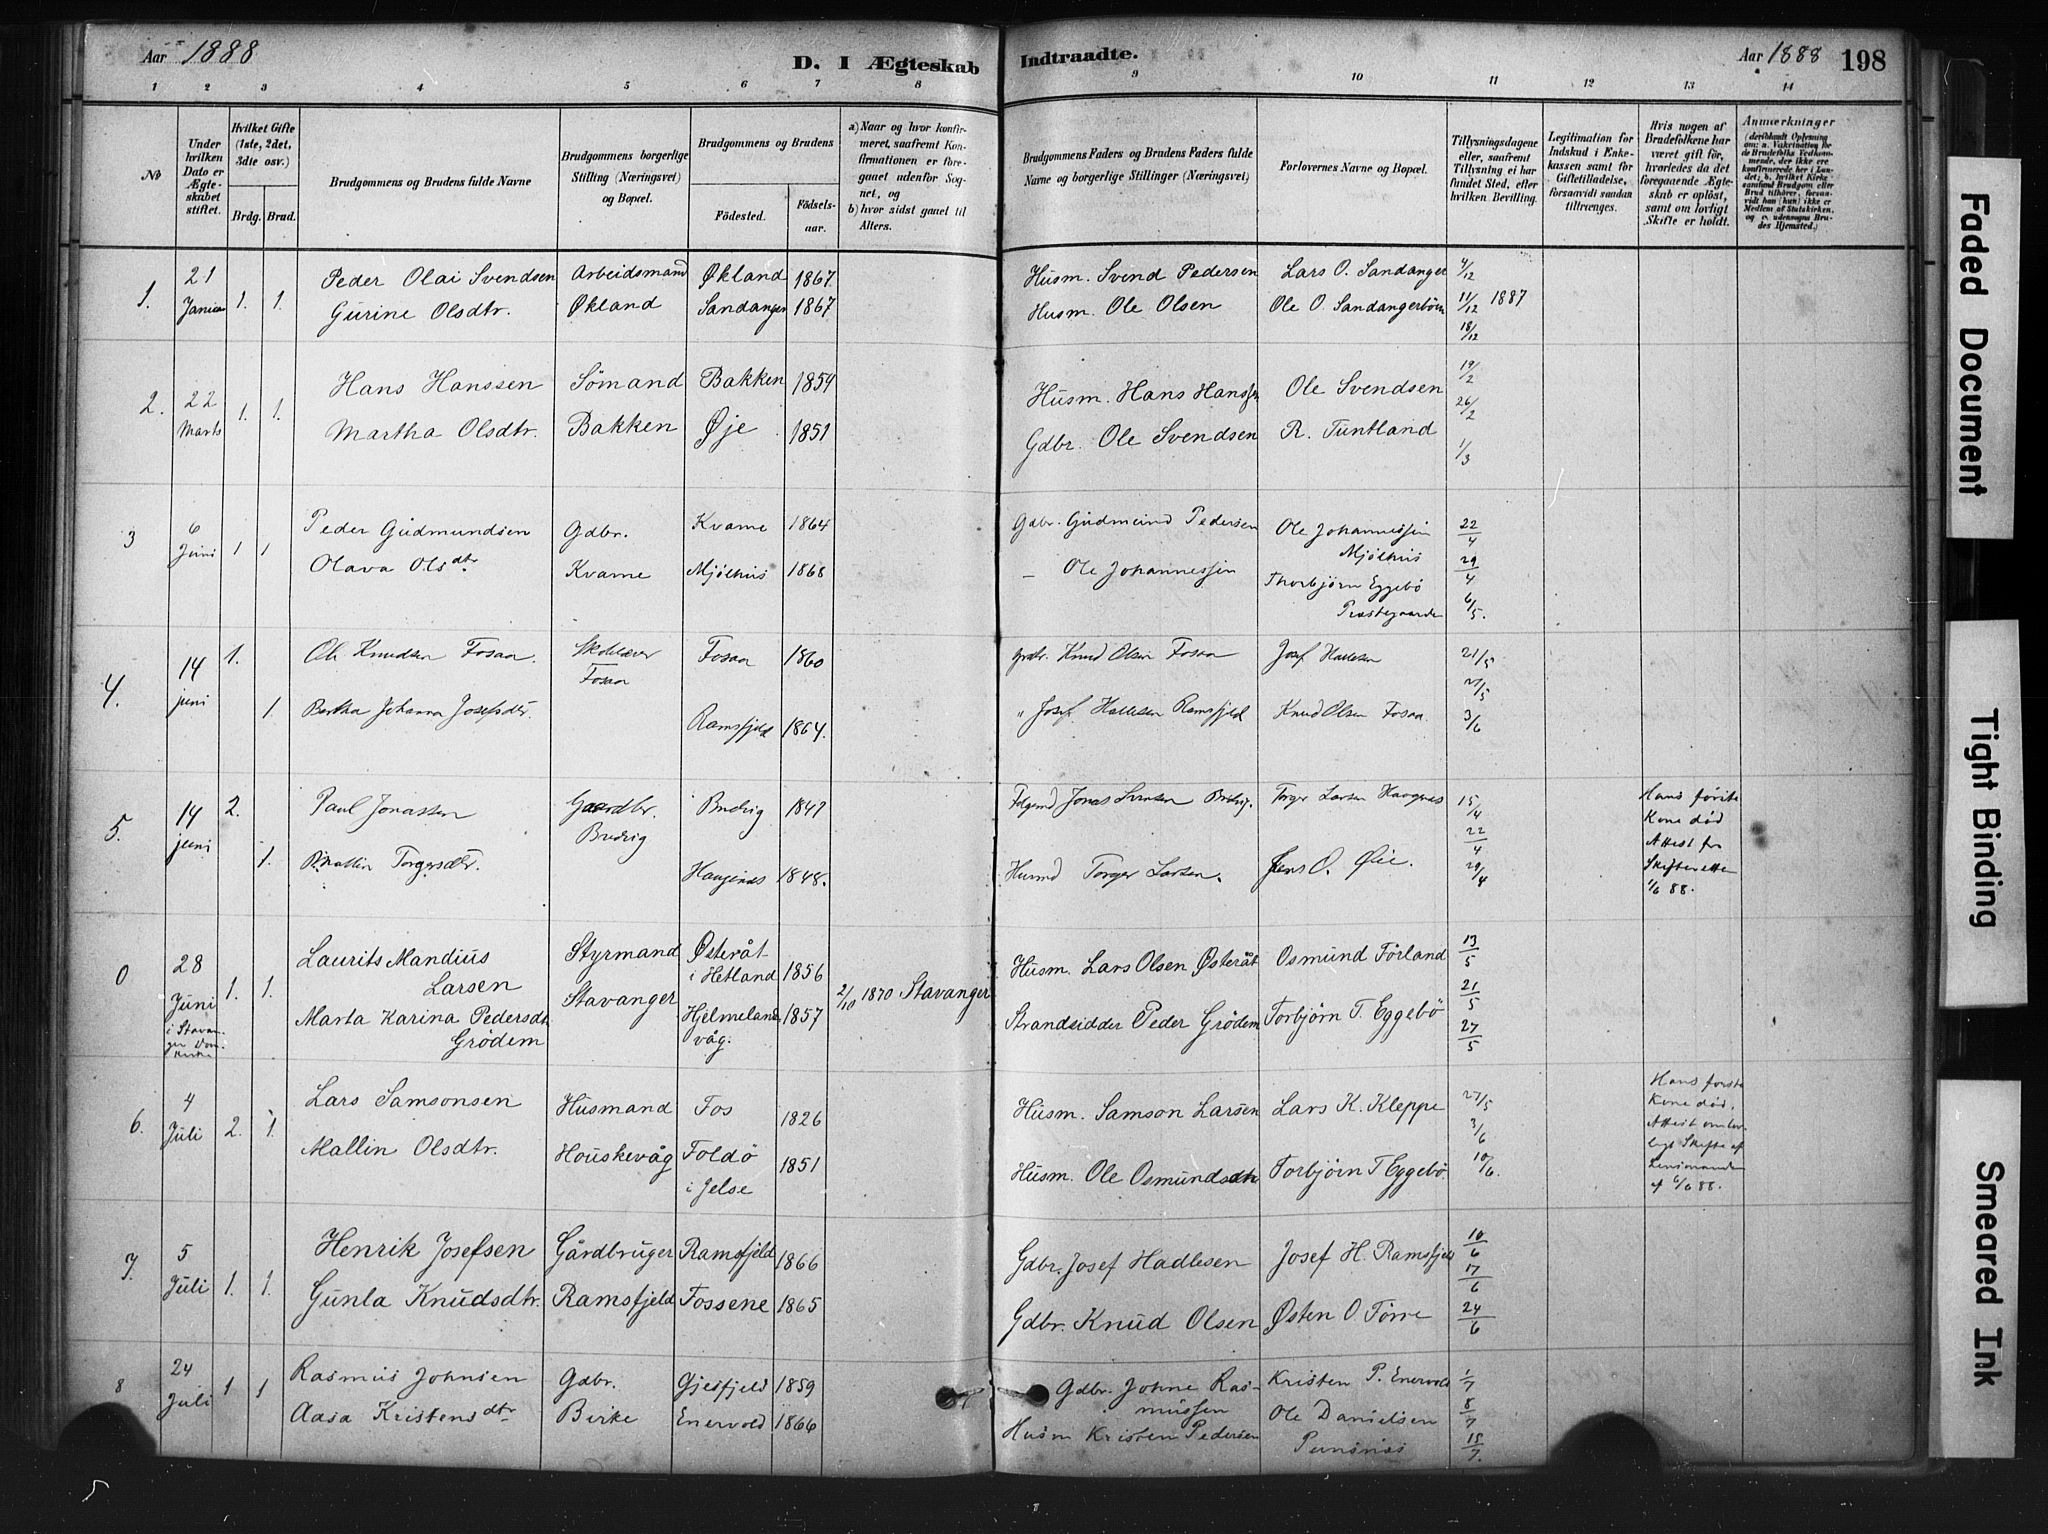 Aar 1888
D. I Ægteskab Indtraadte.
Aar 1888 198
1 2 3 4 5 6 7 8 9 10 11 12 13 14
No
Under hvilken Dato er Ægteskabet stiftet.
Hvilket Gifte (1ste, 2det, 3die osv.)
Brdg. Brud.
Brudgommens og Brudens fulde Navne
Brudgommens borgerlige Stilling (Næringsvei) og Bopæl.
Brudgommens og Brudens
Fødested. Fødselsaar.
a) Naar og hvor konfirmeret, saafremt Konfirmationen er foregaaet udenfor Sognet, og
b) hvor sidst gaaet til Alters.
Brudgommens Faders og Brudens Faders fulde Navne og borgerlige Stillinger (Næringsvei)
Forlovernes Navne og Bopæl.
Tillysningsdagene eller, saafremt Tillysning ei har fundet Sted, efter hvilken Bevilling.
Legitimation for Indskud i Enkekassen samt for Giftetilladelse, forsaavidt saadan tiltrænges.
Hvis nogen af Brudefolkene har været gift før, hvorledes da det foregaaende Ægteskab er opløst, samt om lovligt Skifte er holdt.
Anmærkninger
1. 21 Januar 1. 1. Peder Olai Svendsen Arbeidsmand Økland 1867 Husm. Svend Pedersen Lars O. Sandanger 4/12
Gurine Olsdtr. Økland Sandanger 1867 Husm. Ole Olsen Ole O. Sandangerbøen 11/12 1887
18/12
2. 22 Marts 1. 1. Hans Hanssen Sømand Bakken 1854 Husm. Hans Hanssen Ole Svendsen 19/2
26/2
Martha Olsdtr. Bakken Øje 1851 Gdbr. Ole Svendsen R. Tuntland 1/3
3 6 Juni 1 1 Peder Gudmundsen Gdbr. Kvame 1864 Gdbr. Gudmund Pedersen Ole Johannessen 22/4
Mjølhus
Olava Olsdtr Kvame Mjølhus 1868 — Ole Johannessen 29/4
Thorbjørn Eggebø
Præstegaarden 6/5.
4. 14 juni 1. Ole Knudsen Fosaa. Skolelærer Fosaa 1860 Gdbr. Knud Olsen Fosaa Josef Hallesen 21/5
Fosaa 27/5
1. Bertha Johanna Josefsdtr. Ramsfjeld 1864. " Josef Hallesen Ramsfjeld Knud Olsen Fosaa. 3/6
5. 14 juni 2. Paul Jonassen Gaardbr. 1847 Jonas Torger Larsen Haugenæs 15/4 Hans første
22/4 Kone død
1. Torgersdtr. Haugenæs 1848. Husmd Torger Larsen. Jens O. Øie. 29/4 Attest fra
Skifteretten
1/6 88.
0 28 Juni 1. 1. Laurits Mandius Styrmand Østeråt 13/5
i Stavanger Domkirke
Larsen i Hetland 1856 Husm. Lars Olsen Østeråt Osmund Førland
Stavanger 2/10 1870 Stavanger 21/5
Marta Karina Pedersdtr Hjelmelandvåg. 1857 Strandsidder Peder Grødem Torbjørn T. Eggebø
Grødem 27/5
6. 4 Juli 2. 1. Lars Samsonsen Husmand Fos 1826 Husm. Samson Larsen Lars K. Kleppe 27/5 Hans første
3/6 Kone død.
Mallin Olsdtr. Houskevåg Foldø 1851 Husm. Ole Osmundsen Torbjørn T Eggebø. 10/6. Attest om lov-
i Jelse ligt Skifte af
Lensmanden
af 6/6 88.
7. 5 Juli 1. 1. Henrik Josefsen Gårdbruger Ramsfjeld 1866 Gdbr. Josef Hadlesen Josef H. Ramsfjeld 10/6
17/6
Gunla Knudsdtr. Ramsfjeld Fossene 1865 Gdbr. Knud Olsen Østen O. Tørre 24/6
8 24 Juli 1 1 Rasmus Johnsen Gdbr. Gjesfjeld 1859 Gdbr. Johne Ras- Kristen P. Enervold 1/7
mussen
Aasa Kristensdtr Birke Enervold 1866 Husm Kristen Pedersen Ole Danielsen 8/7
15/7.
Faded Document
Tight Binding
Smeared Ink